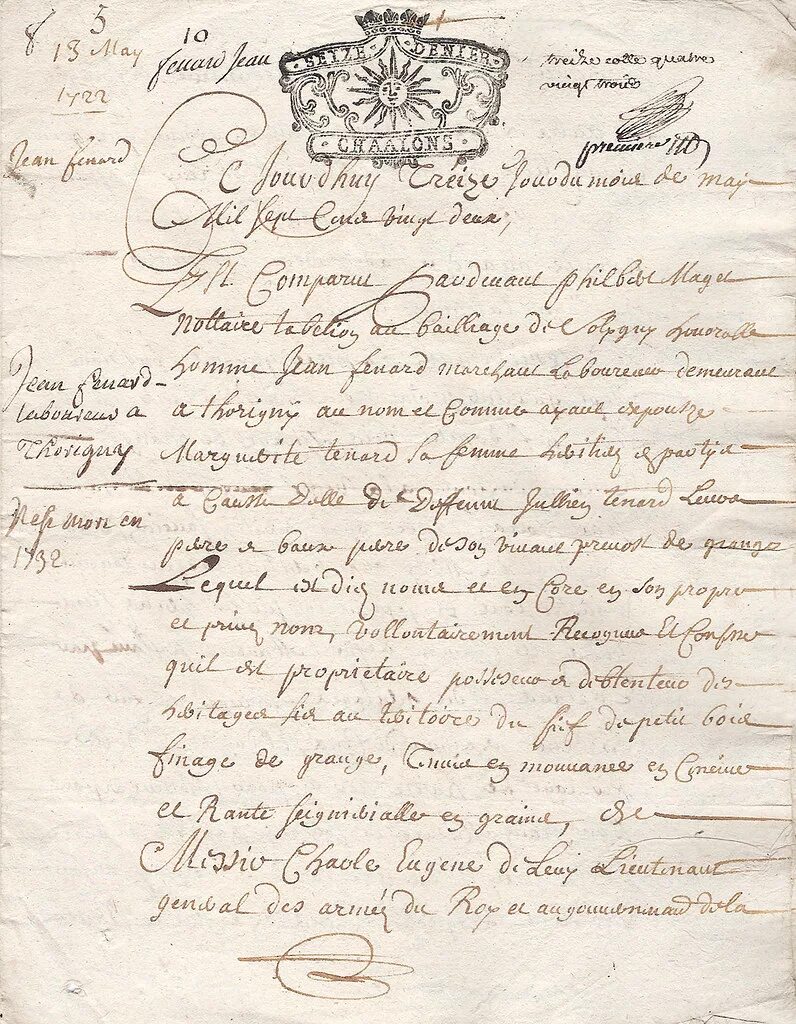 8 5
13 May
1722
10
fenard Jean
SEIZE DENIERS
CHAALONS
treize cotte quatre
vieigt trois
premiere
Jean fenard
Ce Jourdhuy Treize Jour du mois de may
Mil sept Cens vingt deux,
Est Comparut Pardevant Philbert Maget
Nottaire tabelion au bailliage de Soligny honorable
homme Jean fenard marchant Laboureur demeurant
a thorigny au nom et Comme ayant espouze
Margueritte tenard sa femme heritiere en partye
a Cause delle de Deffunt Jullien tenard Leur
pere et baux pere de son vivant prevost de grange
Jean fenard
laboureur a
Thorigny
Nest mort en
1732
Lequel est dis noms et en Core en son propre
et privez nom, vollontairement Recognus Et Confesse
quil est proprietaire possesseur et debtenteur des
heritages sis au teritoire du fief de petit bois
finage de grange, Tenue en mouvance en Censive
et Rante seigneurialle en graine, de
Messire Charle Eugene de Levy Lieutenant
general des armée du Roy et au gouvernement de la